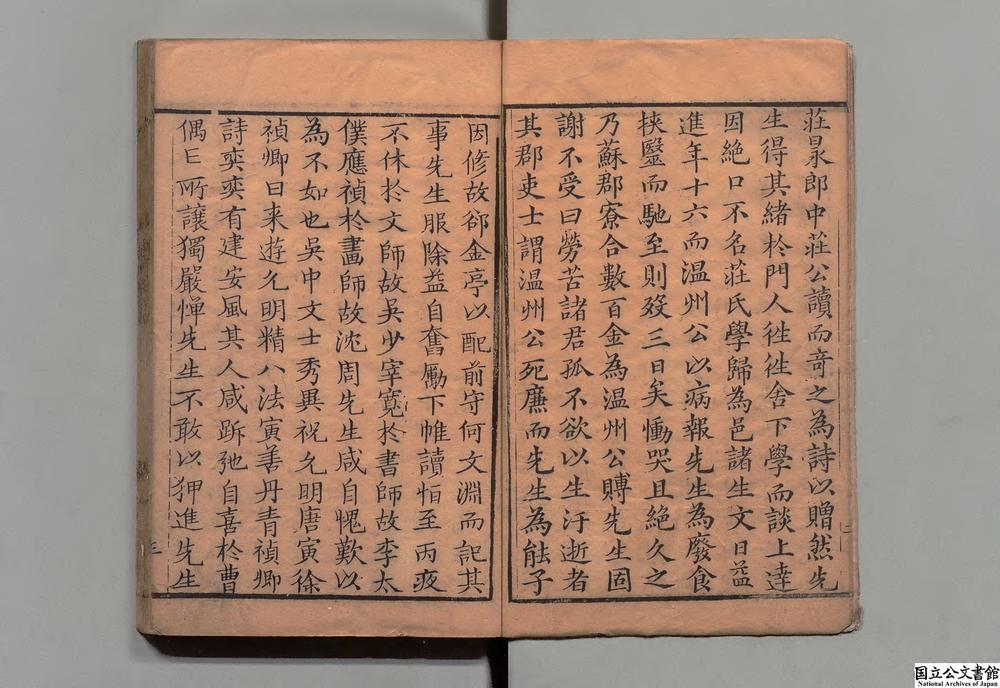 莊㫤郎中莊公讀而竒之為詩以贈然先
生得其緒扵門人徃徃舍下學而談上逹
因絶口不名莊氏學歸為邑諸生文日益
進年十六而温州公以病報先生為廢食
挟毉而馳至則歿三日矣慟哭且絶久之
乃蘇郡寮合數百金為温州公賻先生固
謝不受曰勞苦諸君孤不欲以生汙逝者
其郡吏士謂温州公死廉而先生為能子
因修故郤金亭以配前守何文淵而記其
事先生服除益自奮勵下帷讀恒至丙夜
不休扵文師故吳少宰寛扵書師故李太
僕應禎扵畫師故沈周先生咸自愧歎以
為不如也吳中文士秀異祝允明唐寅徐
禎卿日来游允明精八法寅善丹青禎卿
詩奕奕有建安風其人咸跅弛自喜扵曹
偶亡所讓獨嚴憚先生不敢以狎進先生
二
三
国立公文書館
National Archives of Japan